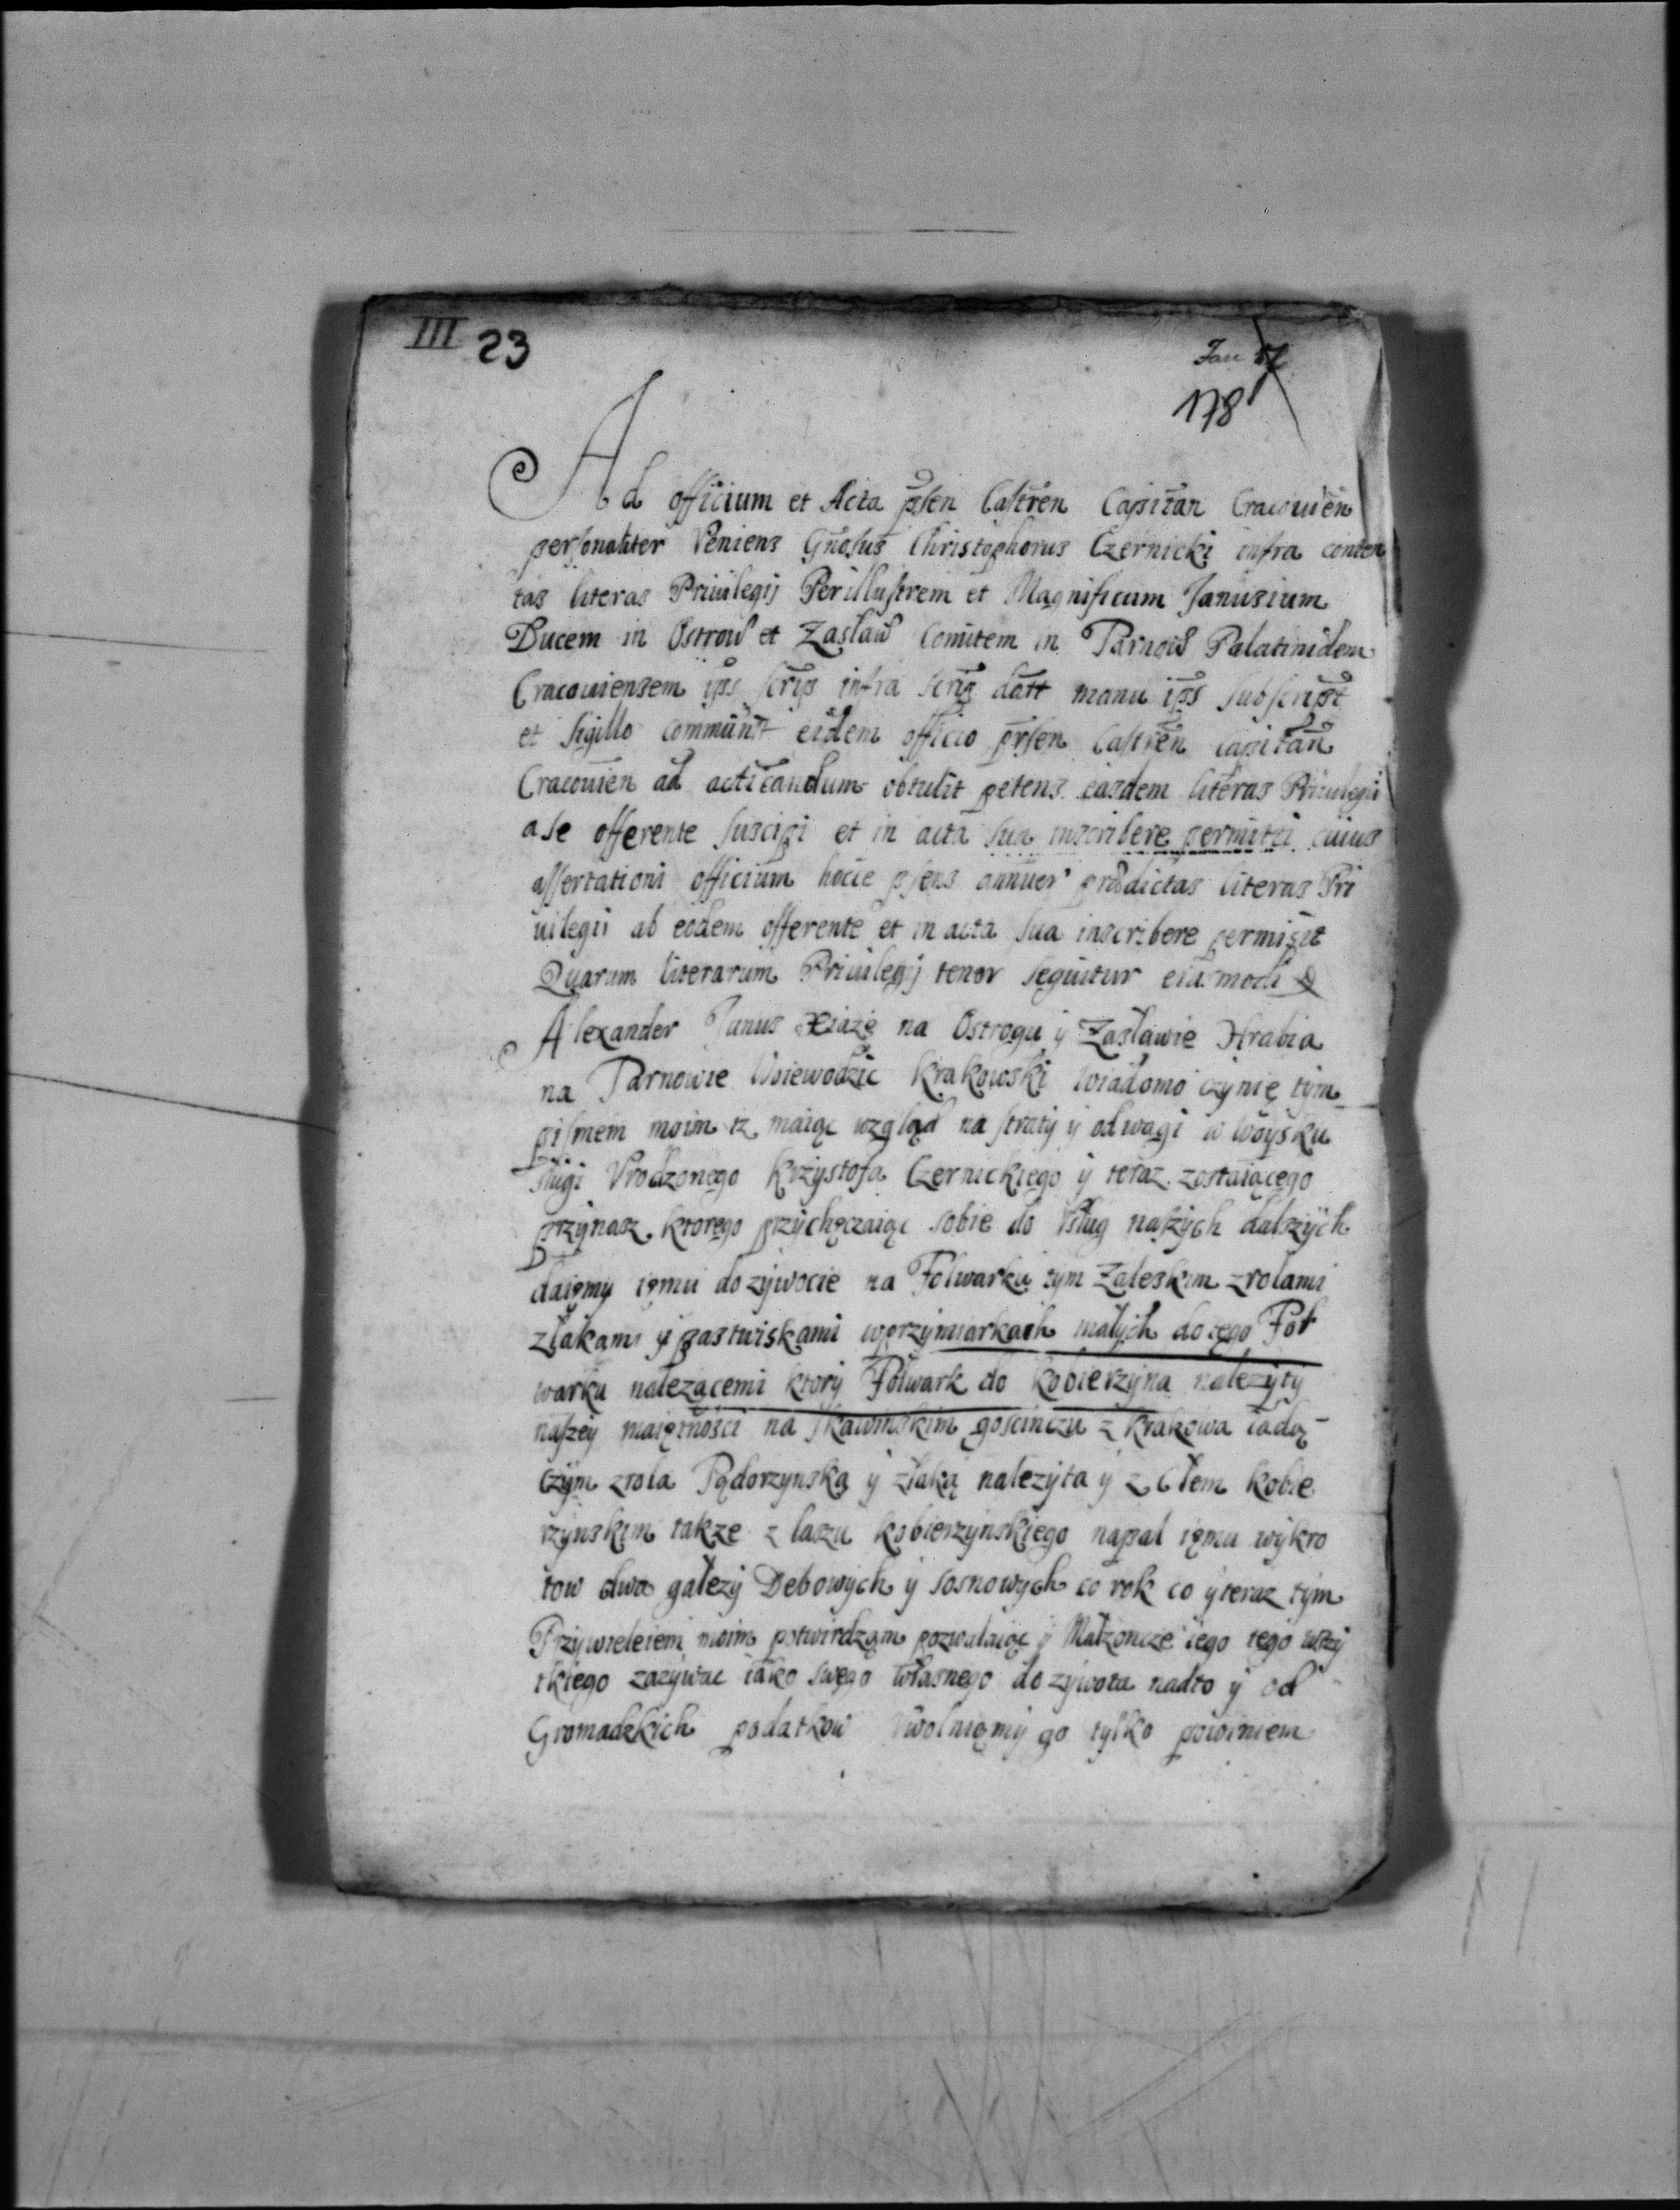 III 23
Jan
178
Ad officium et Acta pñsen Castren Capitan Cracouien
personaliter Veniens Gnosus Christophorus Czernicki infra conten
tas literas Priuilegij Perillustrem et Magnificum Janusium
Ducem in Ostrow et Zasław Comitem in Tarnow Palatinidem
Cracouiensem ips scrip infra scrip datt manu ips subscript
et sigillo communit eidem officio prsen Castren capitan
Cracouien ad acticandum obtulit petens easdem literas Priuilegii
a se offerente suscipi et in acta sua inscribere permitti cuius
assertationi officium hocce psens annuen prædictas literas Pri
uilegii ab eodem offerente et in acta sua inscribere permisit
Quarum literarum Priuilegij tenor sequitur eiusmodi
Alexander Janus Xiąże na Ostrogu ÿ Zasławie Hrabia
na Tarnowie Woiewodzic Krakowski wiadomo czÿnię tÿm
pismem moim iz maiąc wzgląd na stratÿ ÿ odwagi w woÿsku
sługi Vrodzonego Krzÿstofa Czernickiego ÿ teraz zostaiącego
przÿnasz ktorego przÿchęczaiąc sobie do Vsług naszÿch dalszÿch
daięmÿ ięmu dozÿwocie na Folwarku tÿm Zaleskim z rolami
złąkami ÿ pastwiskami wprzÿmiarkach małÿch do tęgo Fol
warku nalezącemi ktorÿ Folwark do Kobierzÿna nalezÿtÿ
naszeÿ maiętności na Skawinskim goscinczu z Krakowa iadą
czÿm z rola Pądorzynską ÿ złąką nalezÿta ÿ z Cłem Kobie
rzÿnskim takze z laszu Kobierzÿnskiego napal ięmu wÿkro
tow dwa gałezÿ Debowÿch ÿ sosnowÿch co rok co ÿ teraz tÿm
Przÿwieleiem moim potwirdzam pozwalaiąc ÿ Małzoncze iego tego wszÿ
tkiego zazÿwac iako swęgo własnego do zÿwota nadto ÿ od
Gromadzkich podatkow Vwolnięmÿ go tÿlko powiniem